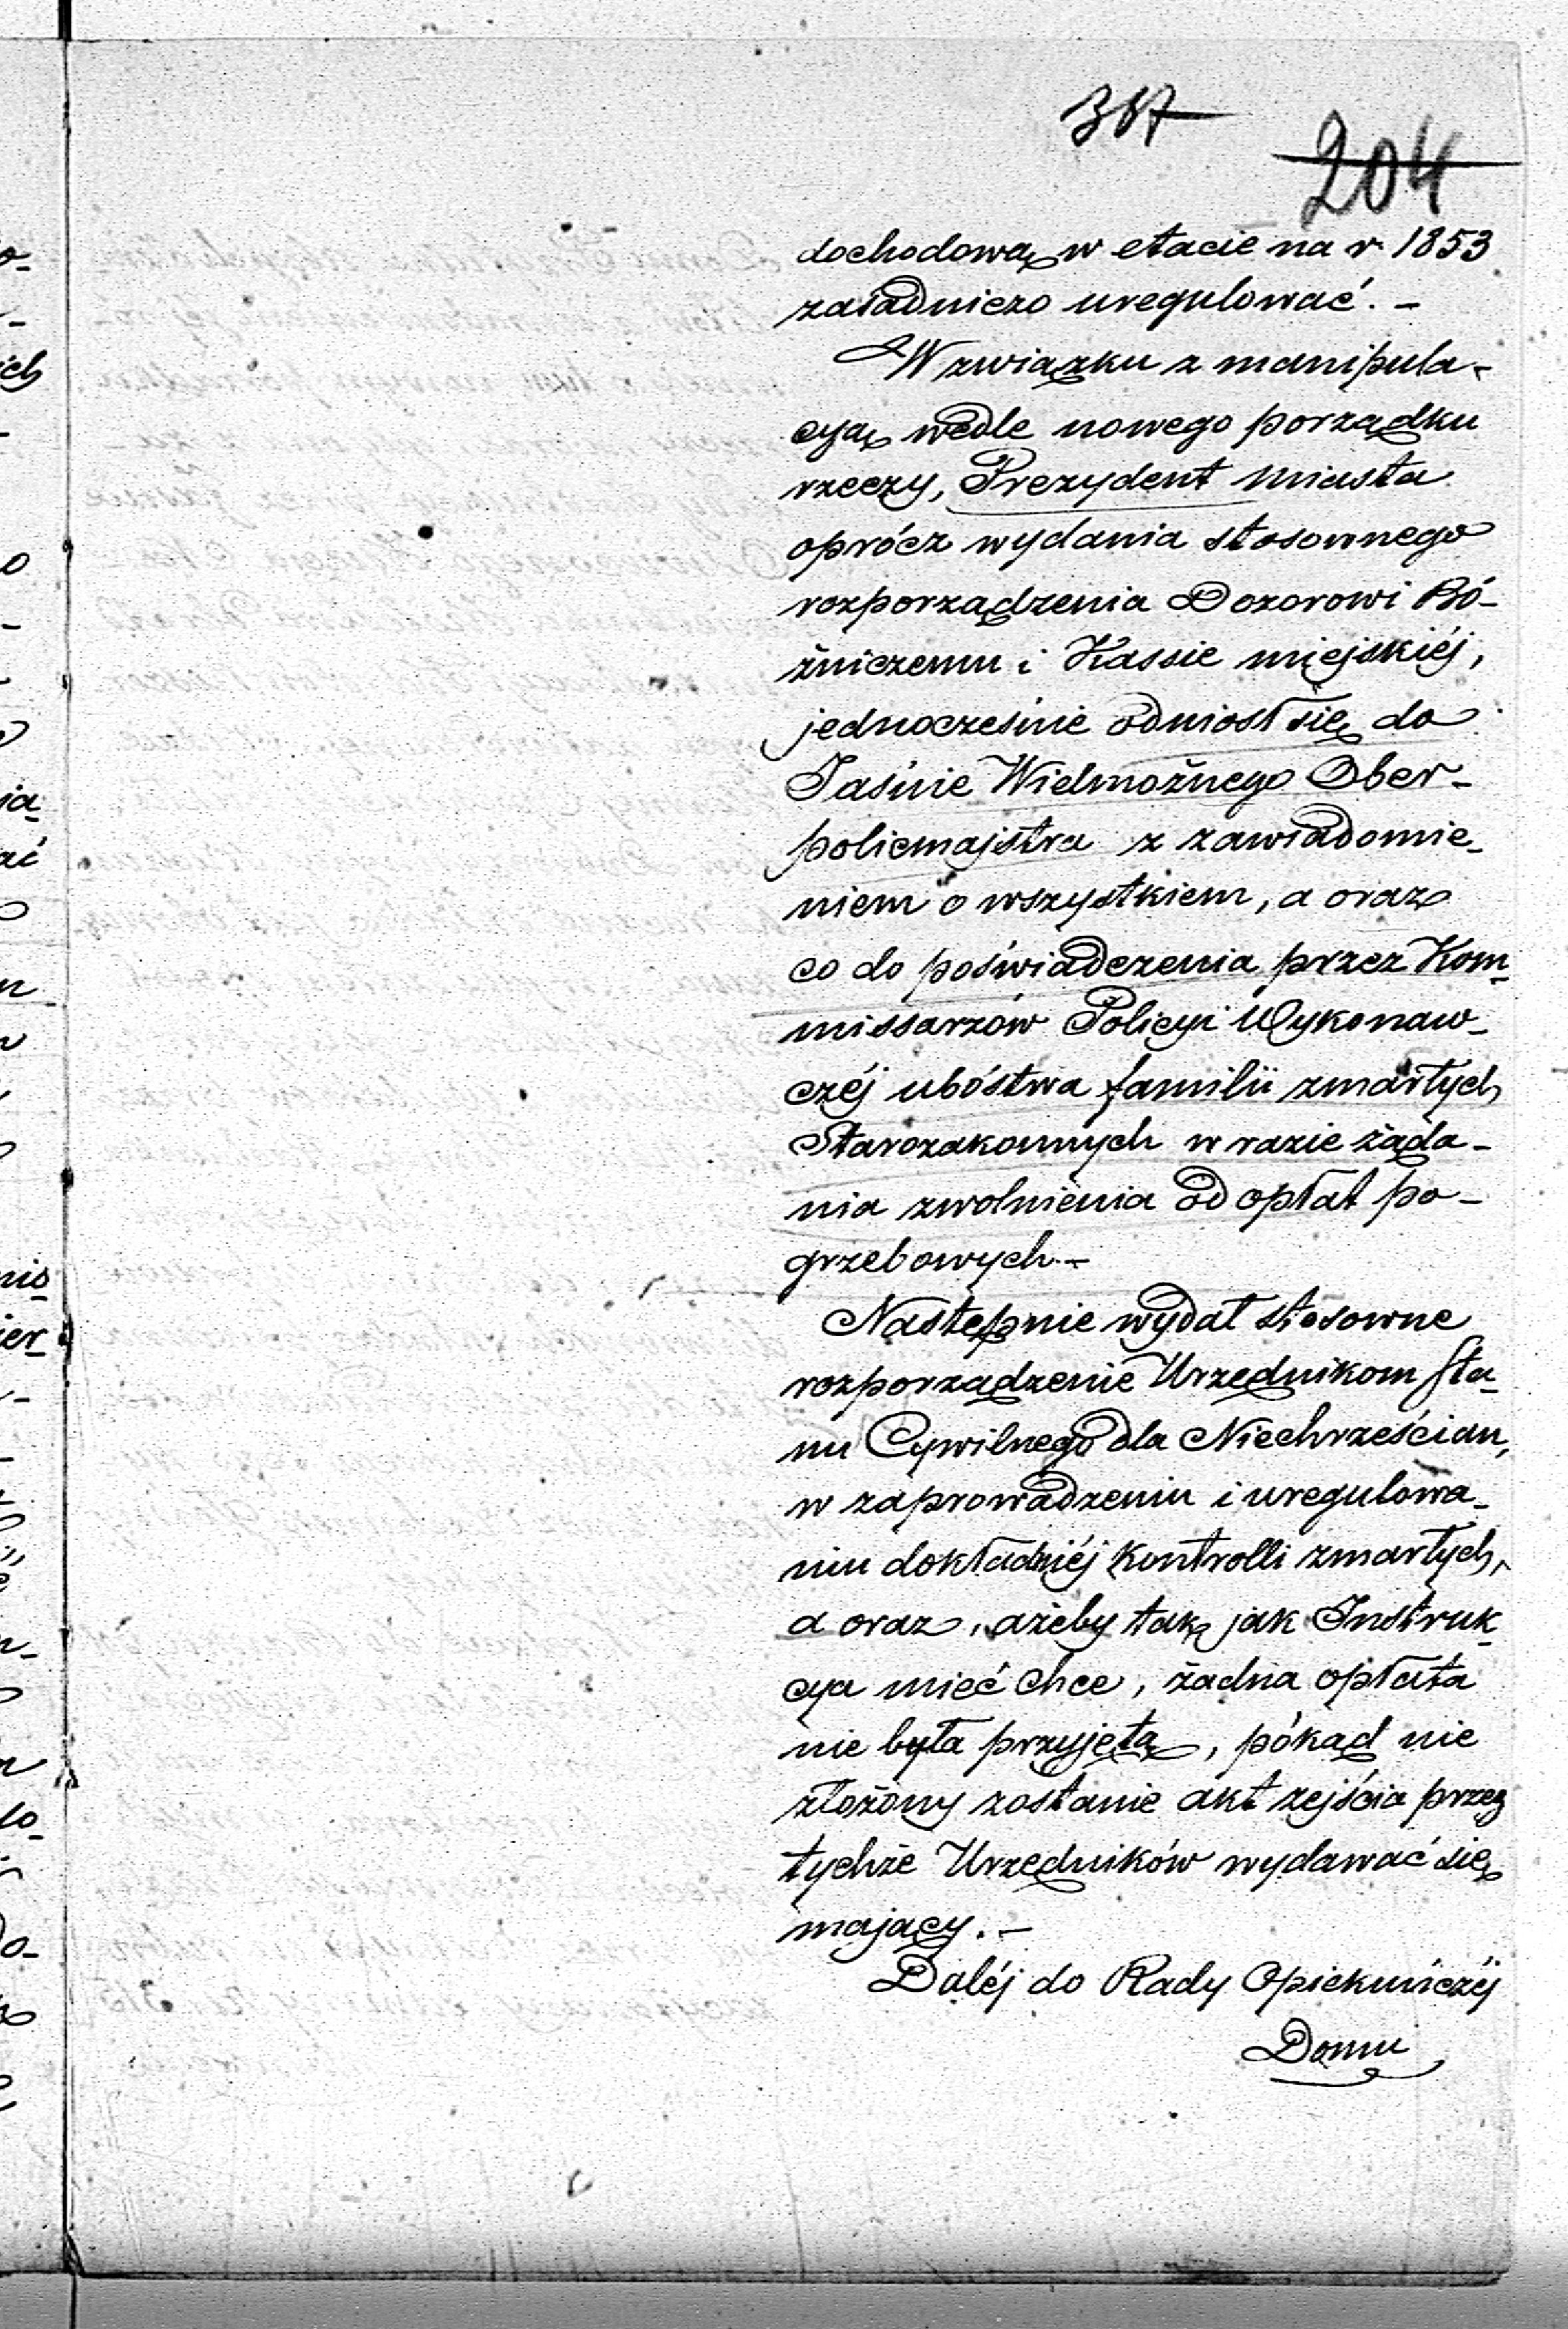 204
dochodową w etacie na r. 1853
zasadniczo uregulować. –
W związku z manipula-
cyą wedle nowego porządku
rzeczy, Prezydent miasta
oprócz wydania stosownego
rozporządzenia Dozorowi Bó-
żniczemu i Kassie miejskiéj,
jednocześnie odniosł się do
Jaśnie Wielmożnego Ober-
policmajstra z zawiadomie-
niem o wszystkiem, a oraz
co do poświadczenia przez Kom-
missarzów Policyi Wykonaw-
czéj ubóstwa familii zmarłych
Starozakonnych w razie żąda-
nia zwolnienia od opłat po-
grzebowych. –
Następnie wydał stosowne
rozporządzenie Urzędnikom Sta-
nu Cywilnego dla Niechrześcian,
w zaprowadzeniu i uregulowa-
niu dokładnéj kontrolli zmarłych,
a oraz, ażeby tak jak Instruk-
cya mieć chce, żadna opłata
nie była przyjętą, pókąd nie
złożony zostanie akt zejścia przez
tychże Urzędników wydawać się
mający. –
Daléj do Rady Opiekuńczéj
Domu